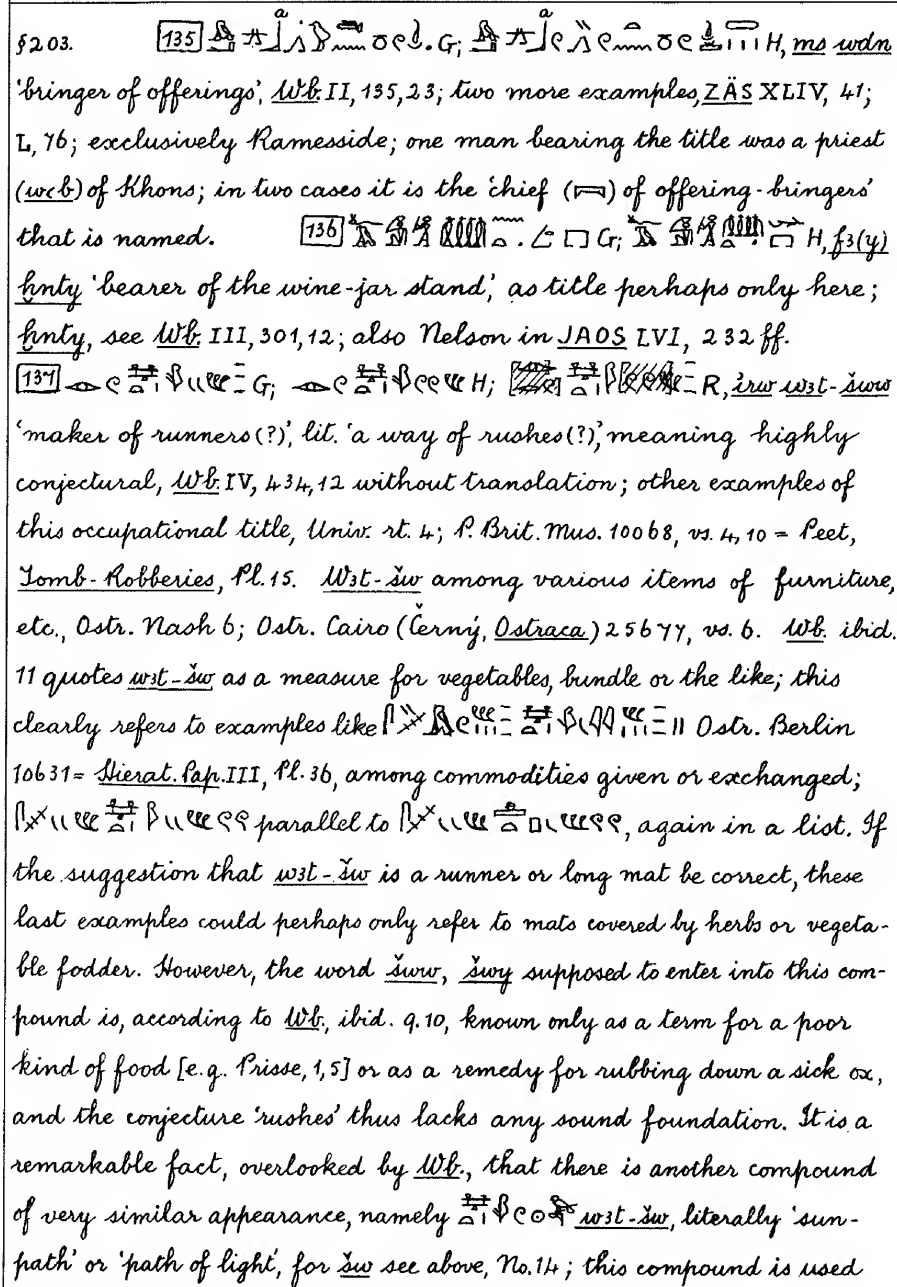 §203. [135] . G; H, ms wdn
'bringer of offerings', Wb. II, 135, 23; two more examples, ZÄS XLIV, 41;
L, 76; exclusively Ramesside; one man bearing the title was a priest
(wꜥb) of Khons; in two cases it is the 'chief () of offering-bringers'
that is named. [136] . G; H, fꜣ(y)
ḫnty 'bearer of the wine-jar stand', as title perhaps only here;
ḫnty, see Wb. III, 301, 12; also Nelson in JAOS LVI, 232 ff.
[137] G; H; R, irw wꜣt-šww
'maker of runners(?)', lit. 'a way of rushes(?)', meaning highly
conjectural, Wb. IV, 434, 12 without translation; other examples of
this occupational title, Univ. rt. 4; P. Brit. Mus. 10068, vs. 4, 10 = Peet,
Tomb-Robberies, Pl. 15. Wꜣt-šw among various items of furniture,
etc., Ostr. Nash 6; Ostr. Cairo (Černý, Ostraca) 25677, vs. 6. Wb. ibid.
11 quotes wꜣt-šw as a measure for vegetables, bundle or the like; this
clearly refers to examples like Ostr. Berlin
10631 = Hierat. Pap. III, Pl. 36, among commodities given or exchanged;
parallel to , again in a list. If
the suggestion that wꜣt-šw is a runner or long mat be correct, these
last examples could perhaps only refer to mats covered by herbs or vegeta-
ble fodder. However, the word šww, šwy supposed to enter into this com-
pound is, according to Wb., ibid. 9.10, known only as a term for a poor
kind of food [e.g. Prisse, 1, 5] or as a remedy for rubbing down a sick ox,
and the conjecture 'rushes' thus lacks any sound foundation. It is a
remarkable fact, overlooked by Wb., that there is another compound
of very similar appearance, namely wꜣt-šw, literally 'sun-
path' or 'path of light', for šw see above, No. 14; this compound is used